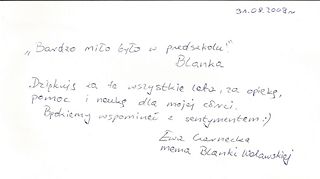 31.08.2009r
„Bardzo miło było w przedszkolu!”
Blanka
Dziękuję za te wszystkie lata, za opiekę,
pomoc i naukę dla mojej córci.
Będziemy wspominać z sentymentem :)
Ewa Czarnecka
mama Blanki Wolawskiej